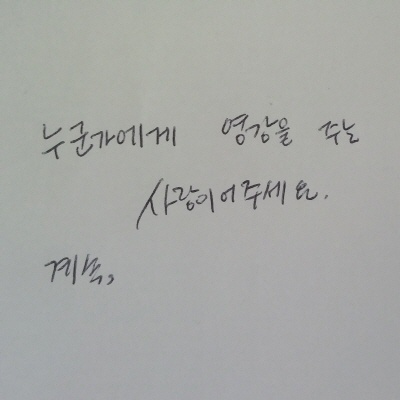 누군가에게 영감을 주는
사람이어주세요.
계속,